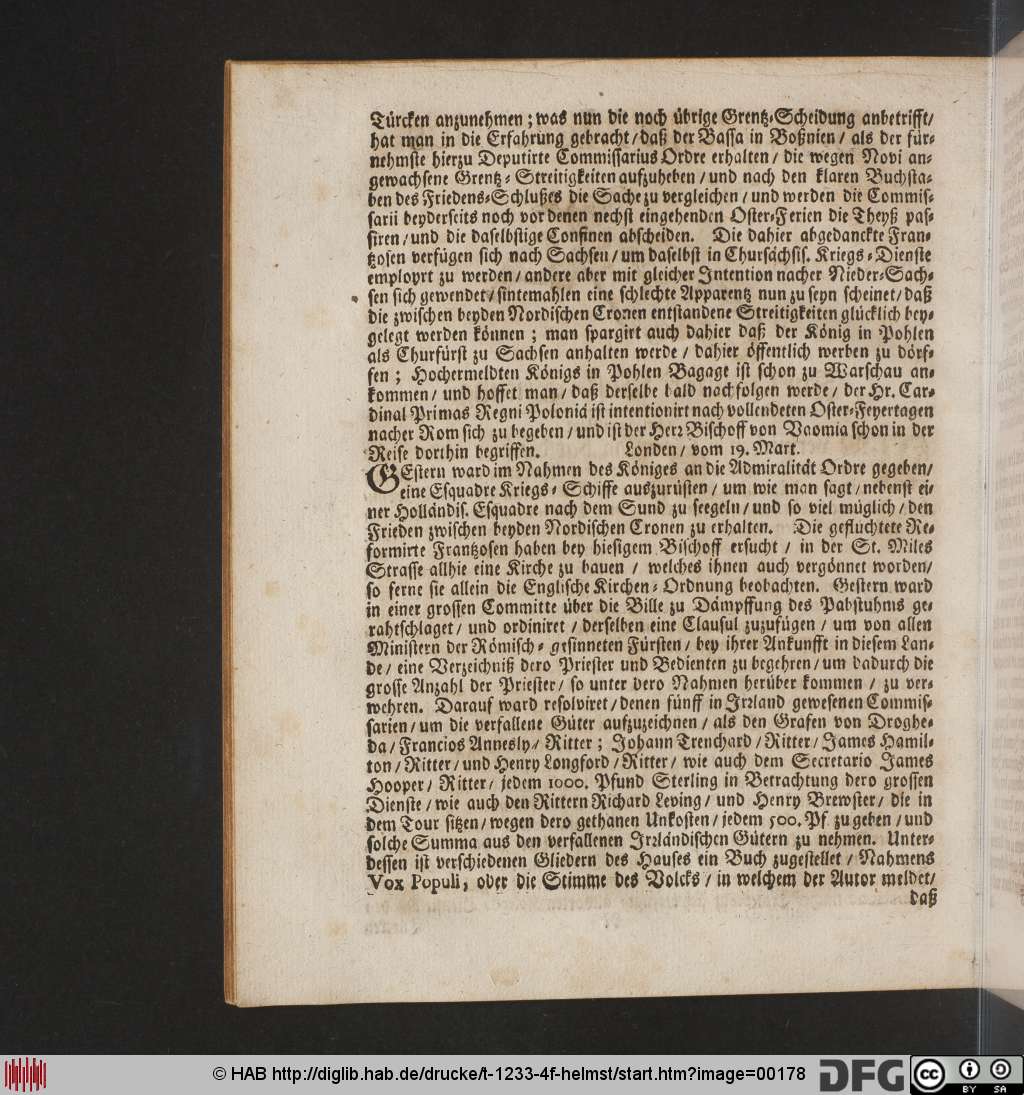 Türcken anzunehmen; was nun die noch übrige Grentz-Scheidung anbetrifft/
hat man in die Erfahrung gebracht/ daß der Bassa in Boßnien/ als der für-
nehmste hierzu Deputirte Commissarius Ordre erhalten/ die wegen Novi an-
gewachsene Grentz-Streitigkeiten aufzuheben/ und nach den klaren Buchsta-
ben des Friedens-Schlußes die Sache zu vergleichen/ und werden die Commis-
sarii beyderseits noch vor denen nechst eingehenden Oster-Ferien die Theyß pas-
siren/ und die daselbstige Confinen abscheiden. Die dahier abgedanckte Fran-
tzosen verfügen sich nach Sachsen/ um daselbst in Chursächsis. Kriegs-Dienste
employrt zu werden/ andere aber mit gleicher Intention nacher Nieder-Sach-
sen sich gewendet/ sintemahlen eine schlechte Apparentz nun zu seyn scheinet/ daß
die zwischen beyden Nordischen Cronen entstandene Streitigkeiten glücklich bey-
gelegt werden können; man spargirt auch dahier daß der König in Pohlen
als Churfürst zu Sachsen anhalten werde/ dahier öffentlich werben zu dörf-
fen; Hochermeldten Königs in Pohlen Bagage ist schon zu Warschau an-
kommen/ und hoffet man/ daß derselbe bald nachfolgen werde/ der Hr. Car-
dinal Primas Regni Poloniä ist intentionirt nach vollendeten Oster-Feyertagen
nacher Rom sich zu begeben/ und ist der Herr Bischoff von Vaomia schon in der
Reise dorthin begriffen. Londen/ vom 19. Mart.
GEstern ward im Nahmen des Königes an die Admiralität Ordre gegeben/
eine Esquadre Kriegs-Schiffe auszurüsten/ um wie man sagt/ nebenst ei-
ner Holländis. Esquadre nach dem Sund zu seegeln/ und so viel müglich/ den
Frieden zwischen beyden Nordischen Cronen zu erhalten. Die gefluchtete Re-
formirte Frantzosen haben bey hiesigem Bischoff ersucht/ in der St. Miles
Strasse allhie eine Kirche zu bauen/ welches ihnen auch vergönnet worden/
so ferne sie allein die Englische Kirchen-Ordnung beobachten. Gestern ward
in einer grossen Committe über die Bille zu Dämpffung des Pabstuhms ge-
rahtschlaget/ und ordiniret/ derselben eine Clausul zuzufügen/ um von allen
Ministern der Römisch-gesinneten Fürsten/ bey ihrer Ankunfft in diesem Lan-
de/ eine Verzeichniß dero Priester und Bedienten zu begehren/ um dadurch die
grosse Anzahl der Priester/ so unter dero Nahmen herüber kommen/ zu ver-
wehren. Darauf ward resolviret/ denen fünff in Irrland gewesenen Commis-
sarien/ um die verfallene Güter aufzuzeichnen/ als den Grafen von Droghe-
da/ Francios Annesly/ Ritter; Johann Trenchard/ Ritter/ James Hamil-
ton/ Ritter/ und Henry Longford/ Ritter/ wie auch dem Secretario James
Hooper/ Ritter/ jedem 1000. Pfund Sterling in Betrachtung dero grossen
Dienste/ wie auch den Rittern Richard Leving/ und Henry Brewster/ die in
dem Tour sitzen/ wegen dero gethanen Unkosten/ jedem 500. Pf. zu geben/ und
solche Summa aus den verfallenen Irrländischen Gütern zu nehmen. Unter-
dessen ist verschiedenen Gliedern des Hauses ein Buch zugestellet/ Nahmens
Vox Populi, oder die Stimme des Volcks/ in welchem der Autor meldet/
daß
© HAB http://diglib.hab.de/drucke/t-1233-4f-helmst/start.htm?image=00178
DFG
cc BY SA